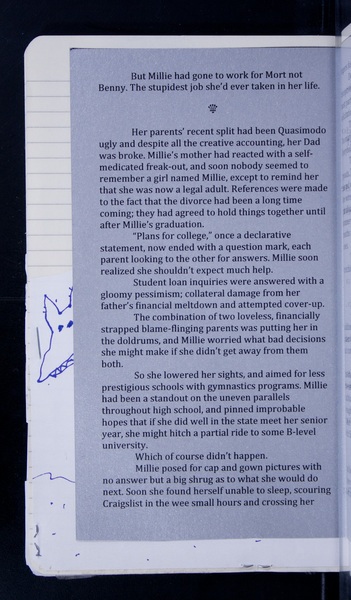 But Millie had gone to work for Mort not
Benny. The stupidest job she'd ever taken in her life.
Her parents' recent split had been Quasimodo
ugly and despite all the creative accounting, her Dad
was broke. Millie's mother had reacted with a self-
medicated freak-out, and soon nobody seemed to
remember a girl named Millie, except to remind her
that she was now a legal adult. References were made
to the fact that the divorce had been a long time
coming; they had agreed to hold things together until
after Millie's graduation.
"Plans for college," once a declarative
statement, now ended with a question mark, each
parent looking to the other for answers. Millie soon
realized she shouldn't expect much help.
Student loan inquiries were answered with a
gloomy pessimism; collateral damage from her
father's financial meltdown and attempted cover-up.
The combination of two loveless, financially
strapped blame-flinging parents was putting her in
the doldrums, and Millie worried what bad decisions
she might make if she didn't get away from them
both.
So she lowered her sights, and aimed for less
prestigious schools with gymnastics programs. Millie
had been a standout on the uneven parallels
throughout high school, and pinned improbable
hopes that if she did well in the state meet her senior
year, she might hitch a partial ride to some B-level
university.
Which of course didn't happen.
Millie posed for cap and gown pictures with
no answer but a big shrug as to what she would do
next. Soon she found herself unable to sleep, scouring
Craigslist in the wee small hours and crossing her